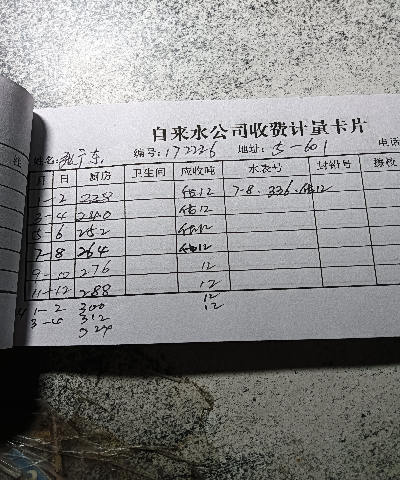 自来水公司收费计量卡片
姓名: 东 编号: 172226 地址: 5-601 电话
月 日 厨房 卫生间 应收吨 水表号 封铅号
1-2 228 估12 7-8. 336. 估12
3-4 240 估12
5-6 252 估12
7-8 264 估12
9-10 276 12
11-12 288 12
1-2 300 12
3-4 312 12
324